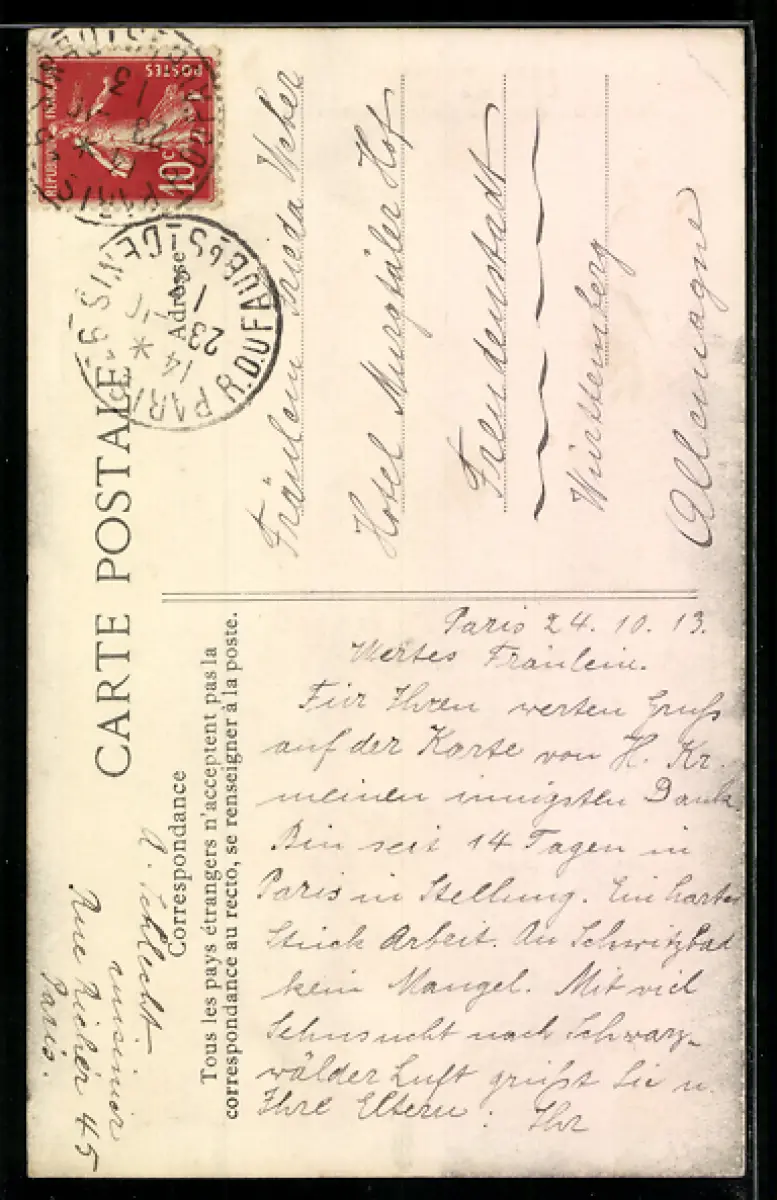 CARTE POSTALE
Correspondance
Adresse
Tous les pays étrangers n'acceptent pas la
correspondance au recto, se renseigner à la poste.
RÉPUBLIQUE FRANÇAISE
POSTES
10c
PARIS
14 * 23
PARIS
R. DU FAUBG ST DENIS
Fräulein Frieda Weber
Hotel Murgtäler Hof
Freudenstadt
Württemberg
Allemagne
Paris 24. 10. 13.
Wertes Fräulein.
Für Ihren werten Gruß
auf der Karte von H. Kr.
meinen innigsten Dank.
Bin seit 14 Tagen in
Paris in Stellung. Ein hartes
Stück Arbeit. An Schwitzbad
kein Mangel. Mit viel
Sehnsucht nach Schwarz-
wälder Luft grüßt Sie u.
Ihre Eltern. Ihr
A. Schlecht
cuisinier
Rue Richer 45
Paris.